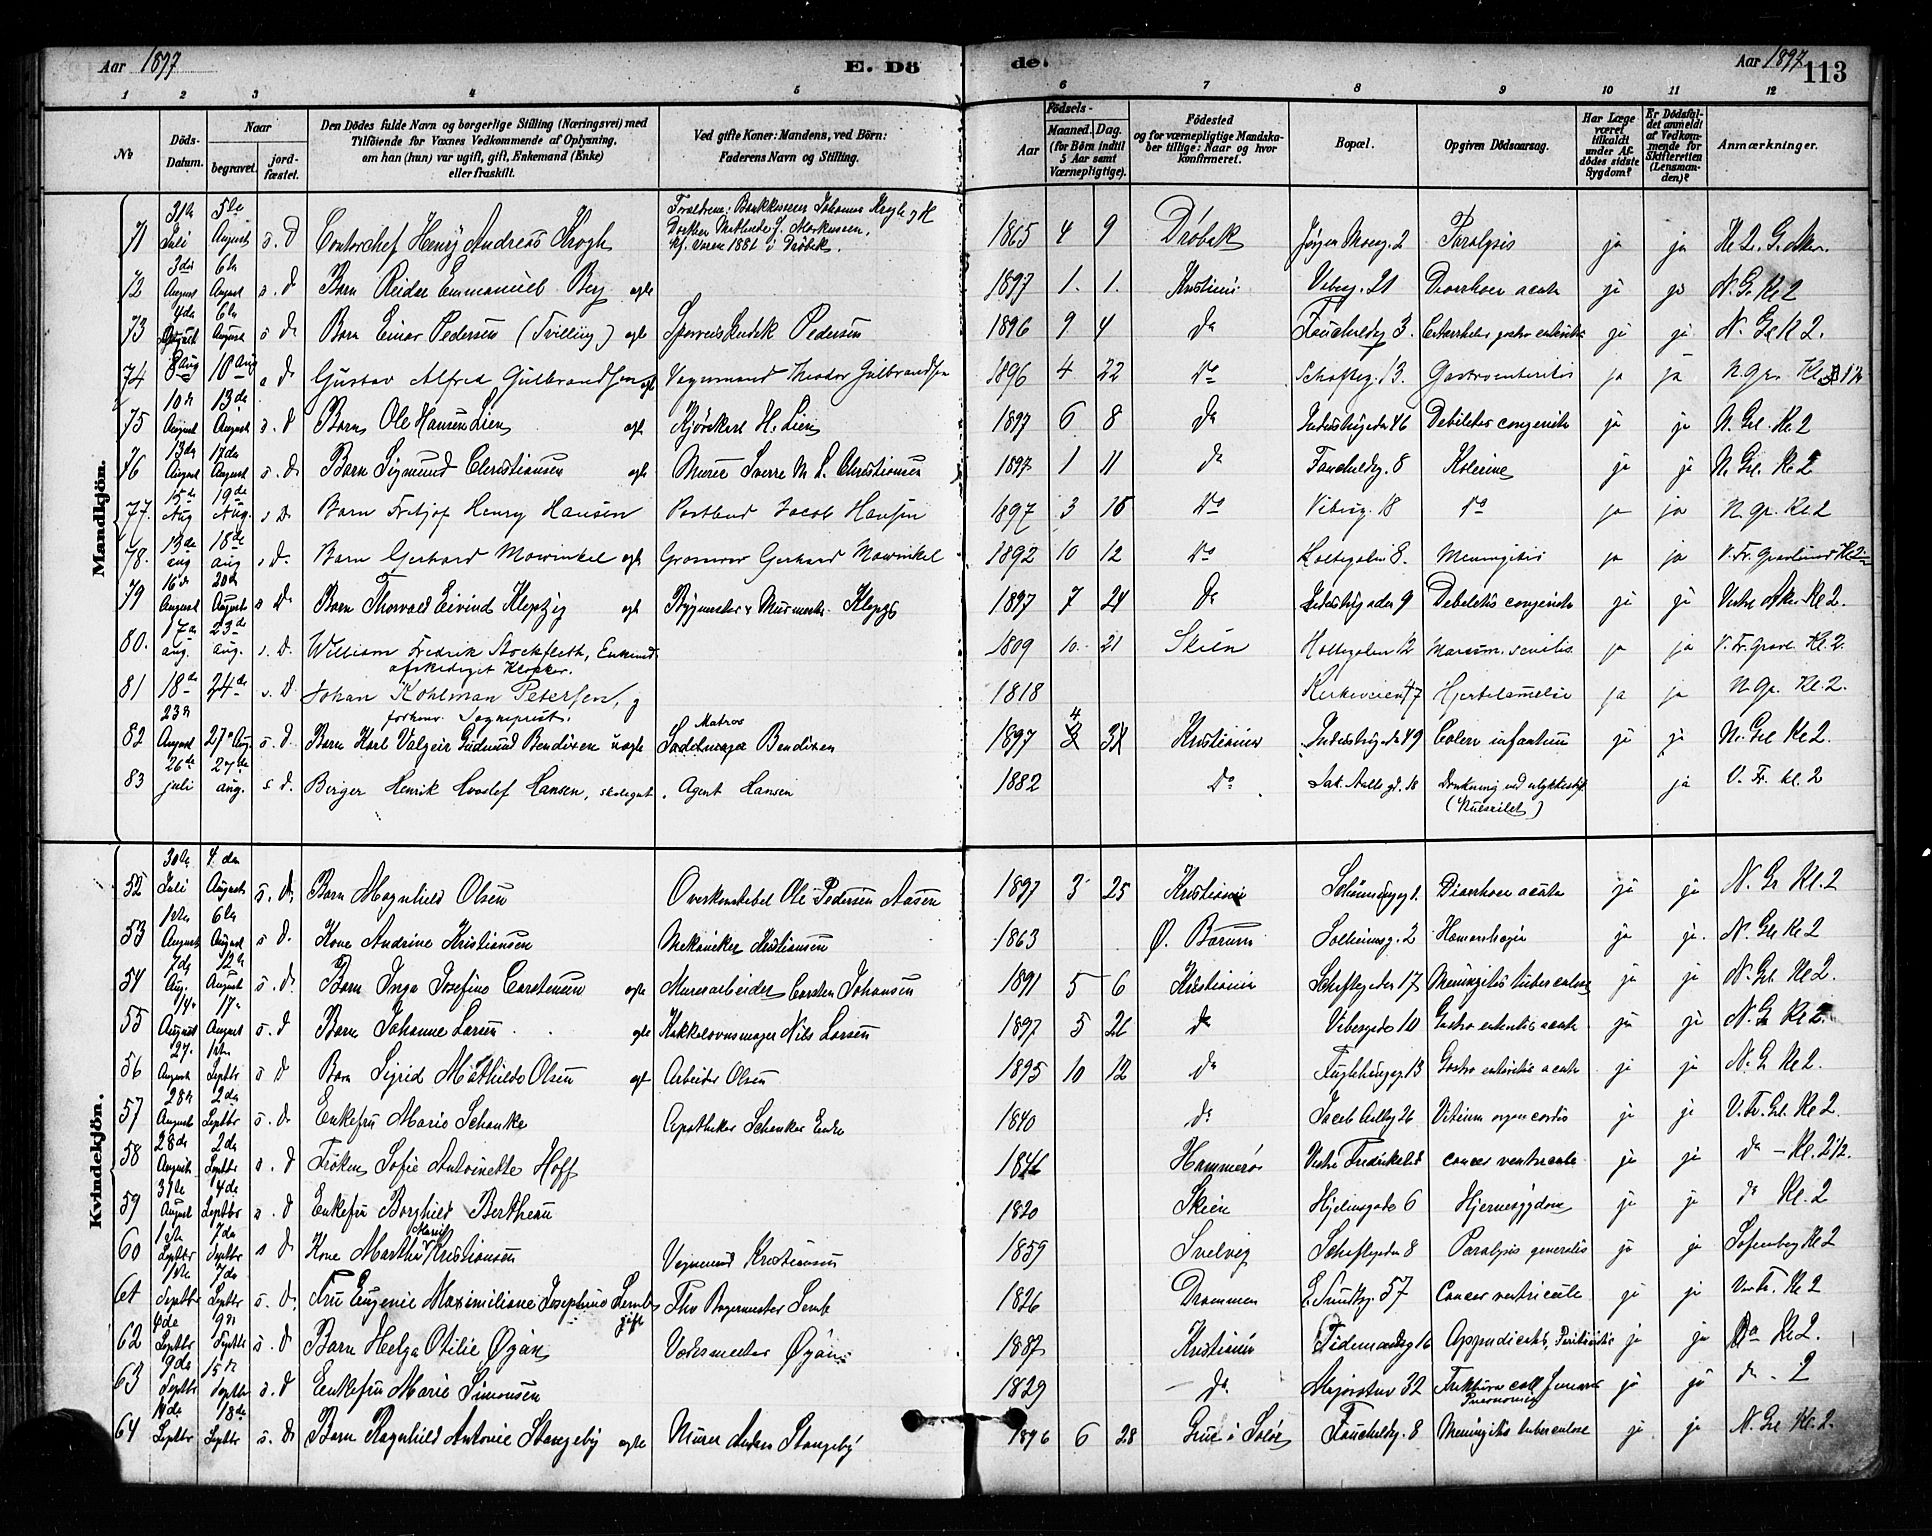 Aar 1897 E. Dö
de. Aar 1897 113
1 2 3 4 5 6 7 8 9 10 11 12
No Döds-Datum. Naar begravet. jordfæstet. Den Dödes fulde Navn og borgerlige Stilling (Næringsvei) med Tilföiende for Vaxnes Vedkommende af Oplysning, om han (hun) var ugift, gift, Enkemand (Enke) eller fraskilt. Ved gifte Koner: Mandens, ved Börn: Faderens Navn og Stilling. Födsels- Aar Maaned. Dag. (for Börn indtil 5 Aar samt Værnepligtige). Födested og for værnepligtige Mandskaber tillige: Naar og hvor konfirmeret. Bopæl. Opgiven Dödsaarsag. Har Læge været tilkaldt under Afdödes sidste Sygdom? Er Dödsfaldet anmeldt af Vedkommende for Skifteretten (Lensmanden)? Anmærkninger.
Mandkjön.
71 31te Juli 5te August s. D Contorchef Henry Andreas Krogh 1865 4 9 Dröbak Jörgen Moesg. 2 Paralysis ja ja
72 3die August 6te August s. d Barn Reidar Emmanuel Berg egte 1897 1. 1. Kristiania Vibesg. 21 Diarrhoea acuta ja ja N. Gr. Kl 2
73 4de August 6te August s d. Barn Einar Pedersen (Tvilling) egte Pedersen 1896 9 4 do Fauchaldsg. 3. ja ja N. Grl Kl 2.
74 8 aug 10 aug s d. Gustav Alfred Gulbrandsen egte Vognmand Theodor Gulbrandsen 1896 4 22 do Schafteg. 13. Gastroenteritis ja ja N. Gr. Kl
75 10de August 13de August s. d Barn Ole Hansen Lien egte Kjörekarl H. Lien 1897 6 8 do Industrigaden 46 Debilitas congenita ja ja N. Grl. Kl 2
76 13de August 17de August s. d. Barn Sigmund Christiansen egte Murer Sverre M. L. Christiansen 1897 1 11 do Fauchaldsg. 8 Kolerine ja ja N. Grl. Kl 2
77. 15de Aug 19de Aug. s D. Barn Fritjof Henry Hansen Postbud Jacob Hansen 1897 3 16 do Vibesg. 18 do ja ja N. gr. Kl. 2
78. 13de aug 18de aug s D. Barn Gerhard Mowinkel egte Grosserer Gerhard Mowinkel 1892 10 12 do Holtegaden 8. Meningitis ja ja V. Fr. Gravlund Kl 2
79 16de August 20de August s D. Barn Thorvald Eivind Klepzig egte Bygmester & Murmester Klepzig 1897 7 24 do Industrigaden 9 Debilitas congenita ja ja Vestre Aker Kl 2.
80. 17de aug. 23de aug. s. D. William Fredrik Stockfleth, Enkemd afskediget Klokker. 1809 10. 21 Skien Holtegaden 12 Marasm. senilis. ja ja V. Fr. Gravl Kl. 2.
81 18de 24de s. D Johan Kohlman Petersen, g forhenv. Sogneprest. 1818 Kirkeveien 47 Hjertelamelse ja ja N. Gr. Kl. 2.
82 23de August 27de Aug s. d. Barn Karl Valgeir Gudmund Bendixen uægte Matros Sadelmager Bendixen 1897 4 Kristiania Industrigaden 49 Colera infantum ja ja N. Grl Kl 2.
83 26de juli 27de aug. s d. Berger Henrik Hvoslef Hansen, skolegut. Agent Hansen 1882 Do Jak. Aalls gd. 18 Drukning ved ulykkestilf. ja V. Fr. kl. 2
Kvindekjön.
52 30te Juli 4de August s. d. Barn Magnhild Olsen Overkonstabel Ole Pedersen Aasen 1897 3 25 Kristiania Diarrhoea acuta ja ja N. Gr Kl. 2
53 1ste August 6te August s d. Kone Andrine Kristiansen Mekaniker Kristiansen 1863 Ø. Bærum Solheimsg. 2 Hæmorrhagia ja ja. N. Gr Kl 2
54 7de Aug. 12te August s. d. Barn Inga Josefine Carstensen egte Murerarbeider Carsten Johansen 1891 5 6 Kristiania Schaftegaden 17 Meningitis tuberculosa ja ja N. Grl Kl 2.
55 14de August 17de August s. d Barn Johanne Larsen egte Kakkelovnsmager Nils Larsen 1897 5 26 do Vibesgade 10 Gastro enteritis acuta ja ja N. Gr Kl 2.
56 27. August 1ste Septbr s d Barn Sigrid Mathilde Olsen egte Arbeider Olsen 1895 10 12 do Fuglehaugsg. 13 Gastro enteritis acuta ja ja N. Gr Kl 2.
57 28de August 2de Septbr s. d. Enkefru Marie Schanke Apotheker Schankes Enke 1840 do Jacob Aallsg 26 Vitium organ cordis ja ja V. Fr. Grl. Kl 2.
58 28de August 2de Septbr s. d Fröken Sofie Antoinette Hoff 1846 Hammerö Vestre Fredrikslund cancer ventriculi ja ja do - Kl. 2 1/2.
59 31te August 4de Septbr s. d Enkefru Borghild Bertheau 1820 Skien Hjelmsgade 6 Hjernesygdom ja ja do Kl. 2
60 1ste Septbr 7de Septbr s d Kone Marthe Marie Kristiansen Vognmand Kristiansen 1859 Svelvig Schaftegaden 8 Paralysis generalis ja ja Sofienberg Kl 2
61 1ste Septbr 7de Septbr s. d. Fru Eugenie Maximiliane Josephine Lemb gift Lemb 1826 Drammen E. Sundtsg. 57 Cancer ventriculi ja ja Kl 2
62 4de Septbr 9de Septbr s. d Barn Helga Otilie Øyan Øyan 1887 Kristiania Tidemandsg 16 Appendicitis, Peritonitis ja ja Do Kl 2.
63 9de Septbr 15de Septbr s. d Enkefru Marie Simonsen 1829 do. Majorstuv 32 Fraktura coll femoris Pneumoni ja ja do. 2
64 14de Septbr 18de Septbr s. d. Barn Ragnhild Antonie Stangeby egte Murer Anders Stangeby 1896 6 28 Grue i Solör Fauchaldsg. 8 Meningitis tuberculose ja ja N. Grl Kl. 2.